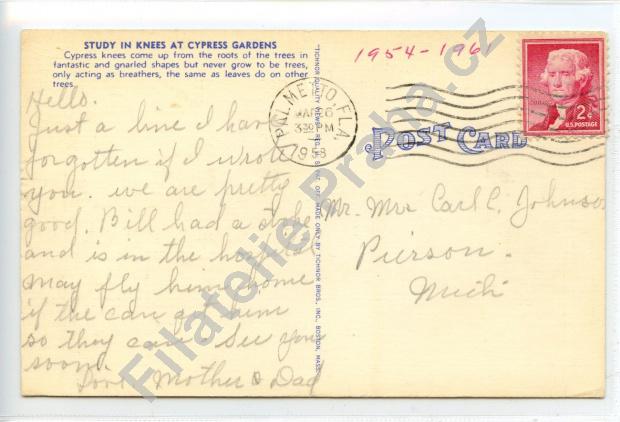 STUDY IN KNEES AT CYPRESS GARDENS
Cypress knees come up from the roots of the trees in
fantastic and gnarled shapes but never grow to be trees,
only acting as breathers, the same as leaves do on other
trees.
Hello.
Just a line I have
forgotten if I wrote
you. we are pretty
good. Bill had a
and is in the hospital
may fly him home
if the can get him
so they can. See you
soon.
Love Mother & Dad
"TICHNOR QUALITY VIEWS," REG. U.S. PAT. OFF. MADE ONLY BY TICHNOR BROS., INC., BOSTON, MASS.
1954-196
PALMETTO FLA
PM
1958
2¢
U.S. POSTAGE
POST CARD
Mr. Mrs Carl C. Johnson
Pierson.
Mich
Filatelie-Praha.cz